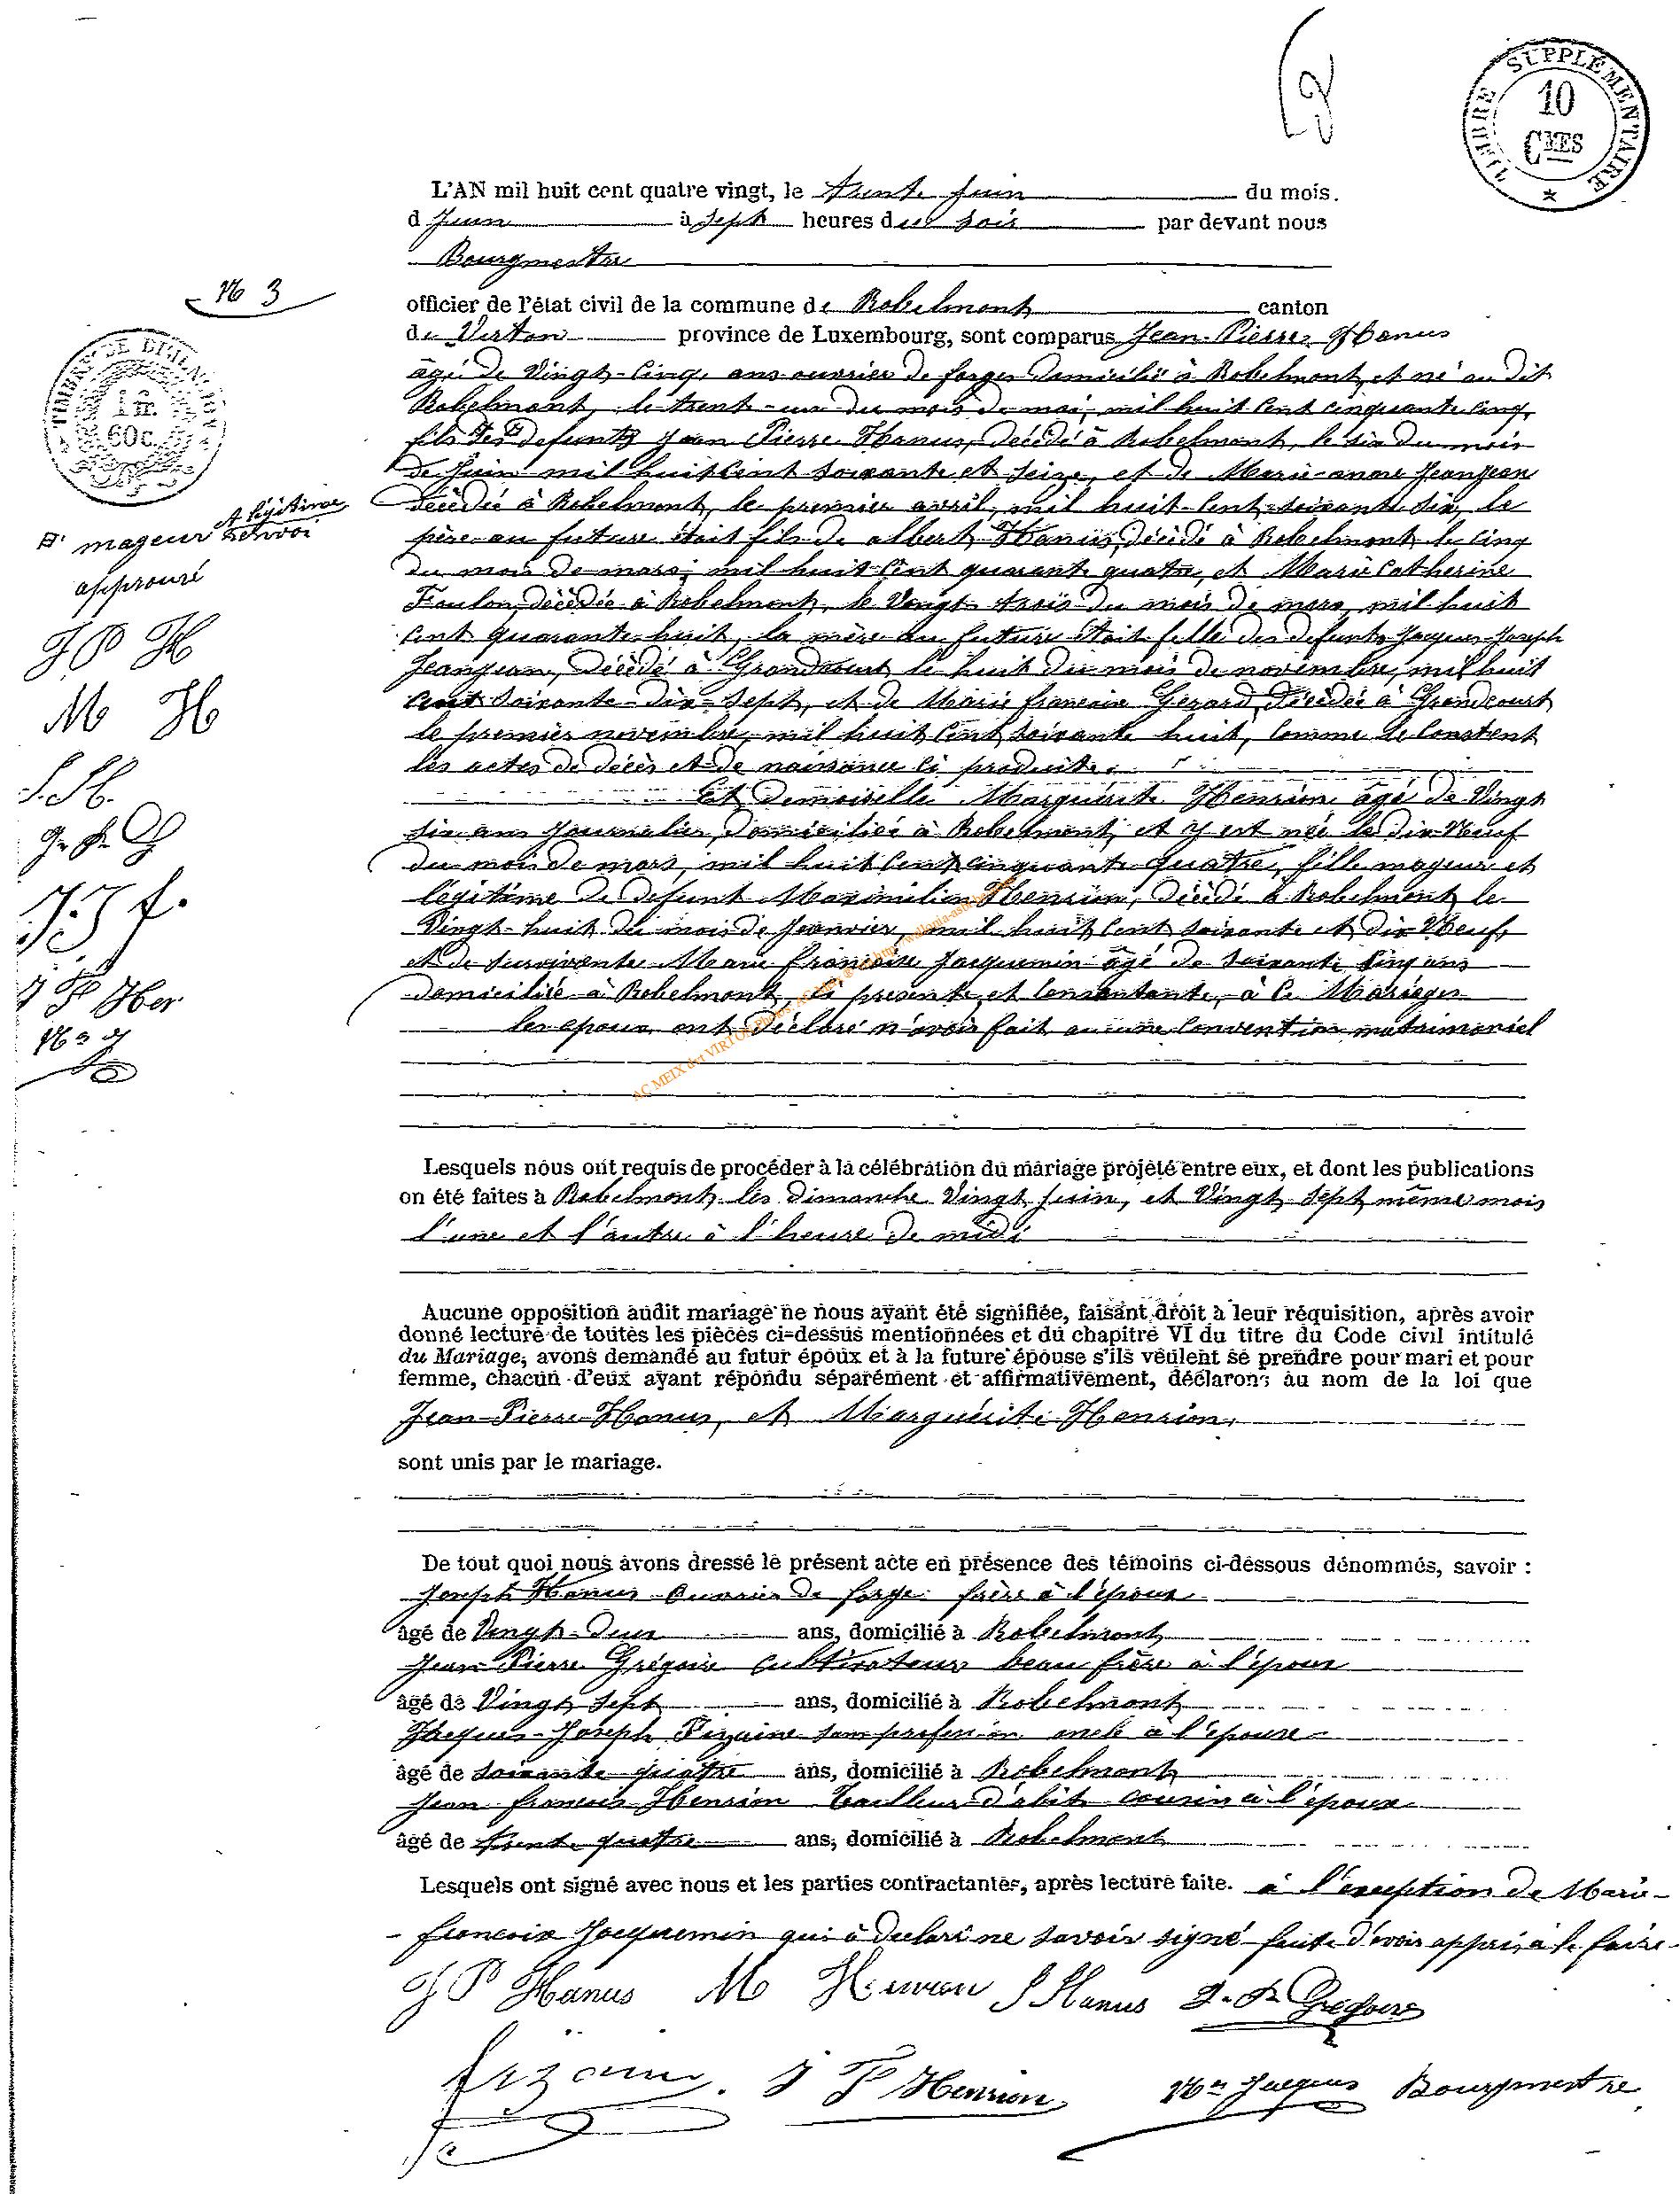 TIMBRE SUPPLÉMENTAIRE
10
CMES
L'AN mil huit cent quatre vingt, le trente juin du mois.
d Juin à sept heures du soir par devant nous
Bourgmestre
N° 3
officier de l'état civil de la commune de Robelmont canton
de Virton province de Luxembourg, sont comparus Jean-Pierre Hanus
âgé de Vingt-Cinq ans ouvrier de forges domicilié à Robelmont et né au dit
Robelmont, le trente-un du mois de mai, mil huit cent cinquante cinq,
fils des défunts Jean Pierre Hanus, décédé à Robelmont, le six du mois
de Juin mil huit cent soixante et seize, et de Marie-anne Jeanjean
décédée à Robelmont, le premier avril, mil huit-cent-soixante six, le
père au future était fils de albert Hanus, décédé à Robelmont le cinq
du mois de mars, mil huit cent quarante quatre, et Marie Catherine
Foulon, décédée à Robelmont, le Vingt trois du mois de mars, mil huit
cent quarante-huit, la mère au future était fille des défunts Jacques-Joseph
Jeanjean, décédé à Grandcourt le huit du mois de novembre, mil huit
cent soixante-dix-sept, et de Marie francoise Gérard, décédée à Grandcourt
le premier novembre, mil huit cent soixante huit, comme le constent
les actes de décès et de naissance ci produite.
Et demoiselle Marguérite Henrion âgé de Vingt
six ans Journalier, domiciliée à Robelmont, et y est née le dix-Neuf
du mois de mars, mil huit cent cinquante quatre, fille mageur et
légitime de defunt Maximilien Henrion, décédé à Robelmont le
Vingt-huit du mois de Janvier, mil huit cent soixante et dix Neuf,
et de survivante Marie francoise Jacquemin âgé de soixante cinq ans
domicilié à Robelmont, ci présente et consentante, à ce Mariage
les epoux ont déclaré n'avoir fait aucune convention matrimoniel
TIMBRE DE DIMENSION
1 fr.
60 c.
mageur et légitime
renvoi
approuvé
J P H
M H
J. H.
J. P. G
J. J. f.
J F Hen
AC MEIX dvt VIRTON
Lesquels nous ont requis de procéder à la célébration du mariage projeté entre eux, et dont les publications
on été faites à Robelmont les dimanche Vingt juin, et Vingt sept même mois
l'une et l'autre à l'heure de midi
Aucune opposition audit mariage ne nous ayant été signifiée, faisant droit à leur réquisition, après avoir
donné lecture de toutes les pièces ci-dessus mentionnées et du chapitre VI du titre du Code civil intitulé
du Mariage, avons demandé au futur époux et à la future épouse s'ils veulent se prendre pour mari et pour
femme, chacun d'eux ayant répondu séparément et affirmativement, déclarons au nom de la loi que
Jean-Pierre-Hanus, et Marguérite Henrion,
sont unis par le mariage.
De tout quoi nous avons dressé le présent acte en présence des témoins ci-dessous dénommés, savoir :
Joseph Hanus Ouvrier de forge frère à l'époux
âgé de Vingt-Deux ans, domicilié à Robelmont
Jean Pierre Grégoire cultivateur beau frère à l'époux
âgé de Vingt sept ans, domicilié à Robelmont
Jacques-Joseph Fizaine sans profession oncle à l'épouse
âgé de soixante quatre ans, domicilié à Robelmont
Jean francois Henrion tailleur d'abit cousin à l'épouse
âgé de trente quatre ans, domicilié à Robelmont
Lesquels ont signé avec nous et les parties contractantes, après lecture faite. à l'exception de Marie-
francoise Jacquemin qui à declaré ne savoir signé faute d'avoir appris à le faire
J P Hanus M Henrion J Hanus J. P. Gregoire
fizaine. J F Henrion Jacques Bourgmestre